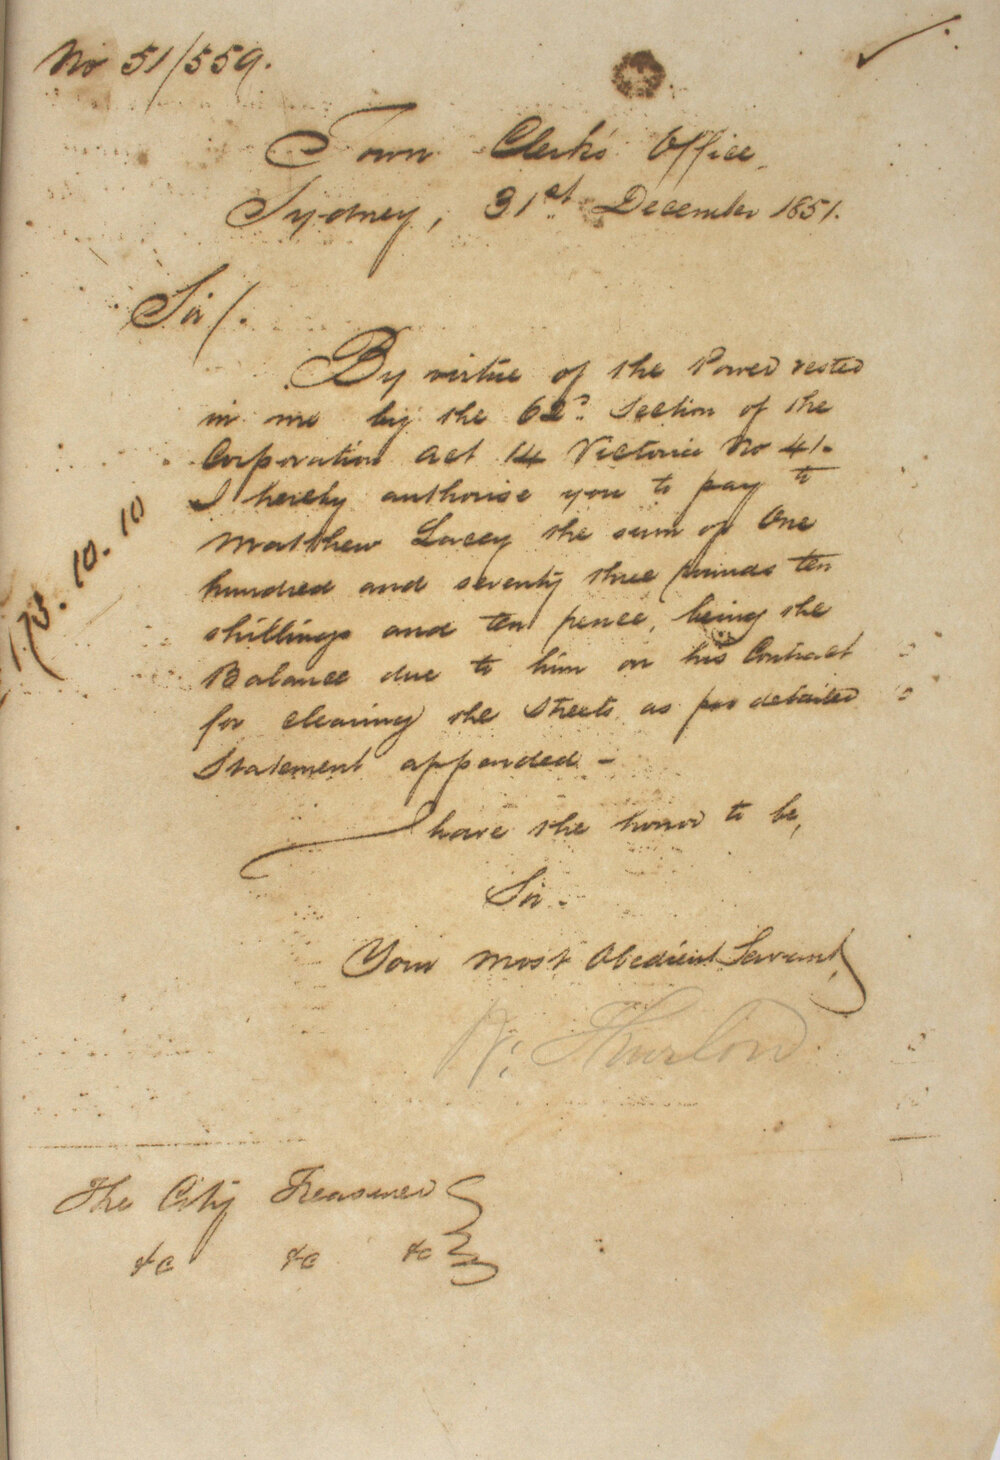 No 51/559.
Town Clerk's Office
Sydney, 31st December 1851.
Sir/.
By virtue of the Power vested
in me by the 62d. Section of the
Corporation Act 14 Victoria No 41.
I hereby authorise you to pay to
Matthew Lacey the sum of One
hundred and seventy three pounds ten
shillings and ten pence, being the
Balance due to him on his Contract
for cleaning the Streets, as per detailed
Statement appended -
173.10.10
I have the honor to be,
Sir.
Your Most Obedient Servant,
W: Thurlow
The City Treasurer
&c &c &c